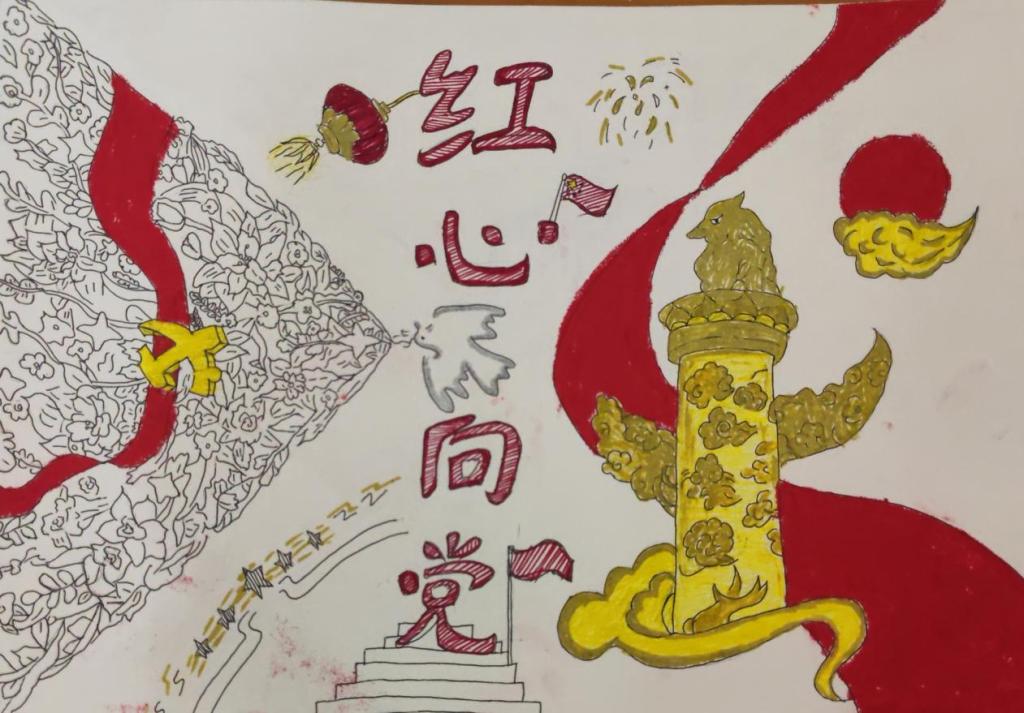 红心向党